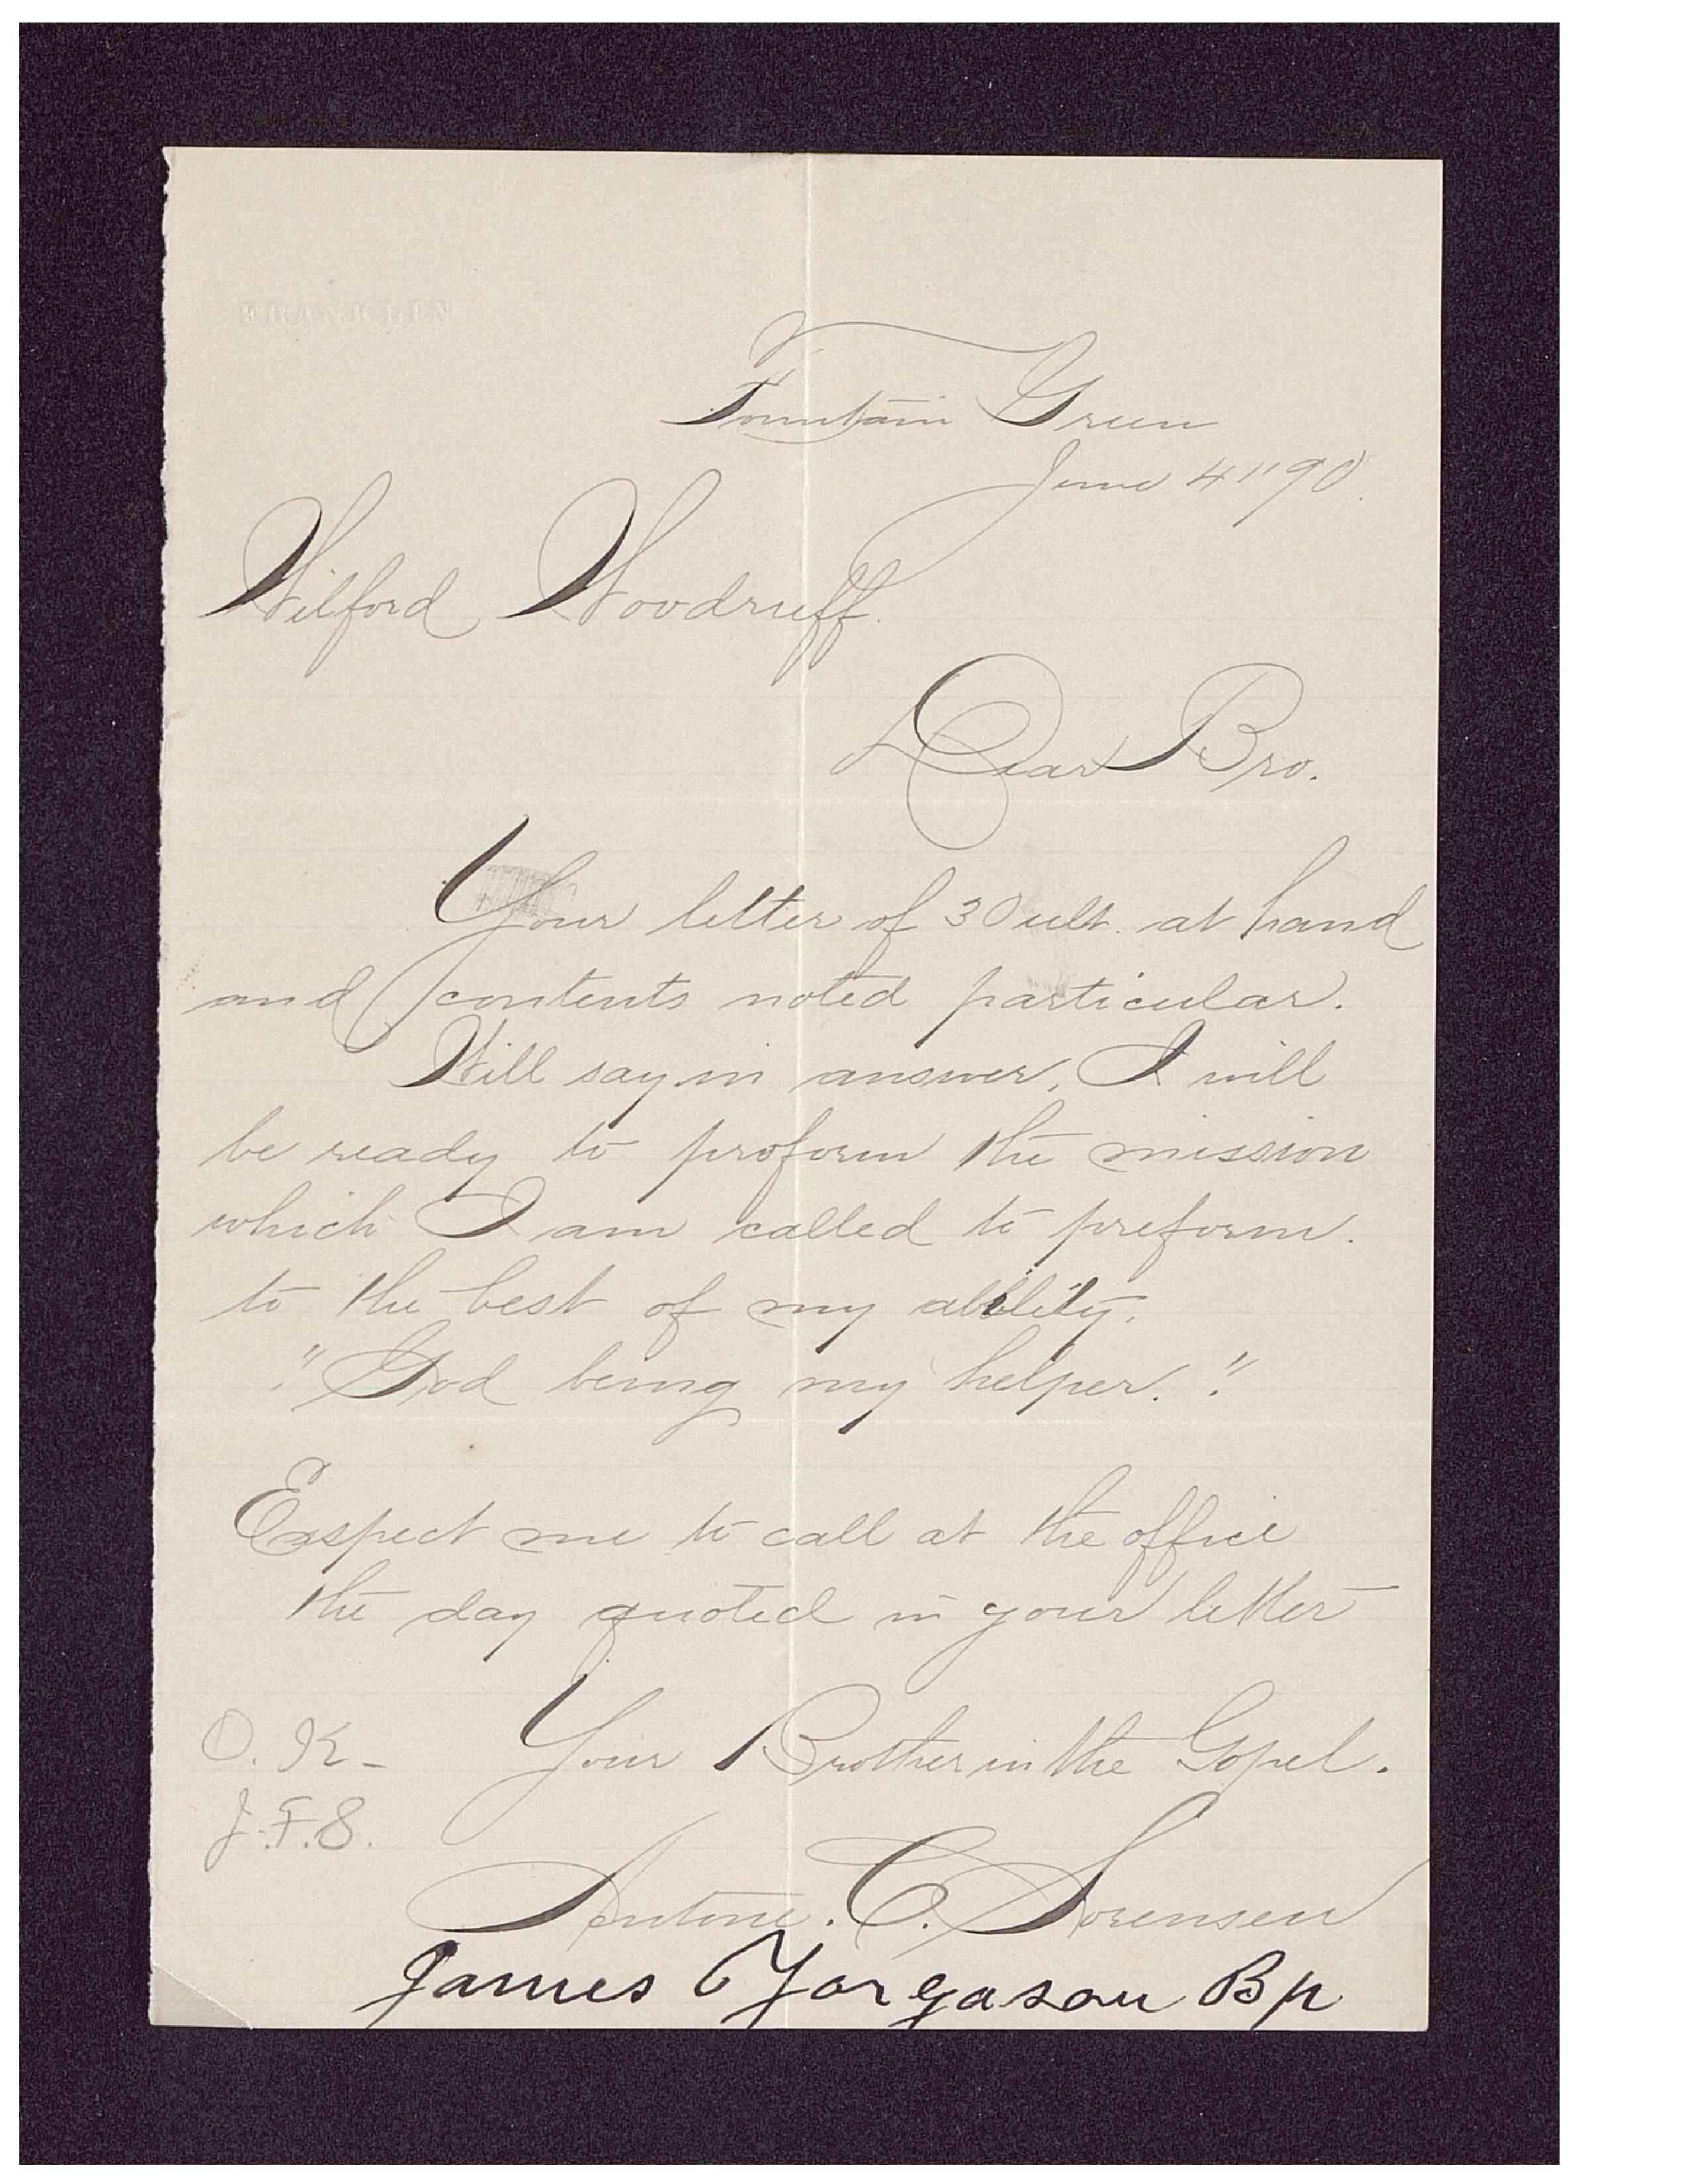 FRANKLIN
Fountain Green
June 4" 90.
Wilford Woodruff.
Dear Bro.
Your letter of 30 ult. at hand
and contents noted particular.
Will say in answer, I will
be ready to proform the mission
which I am called to preform.
to the best of my ability.
"God being my helper."
Expect me to call at the office
the day quoted in your letter
Your Brother in the Gopel.
O. K-
J.F.S.
Antone. C. Sorensen
James Yorgason Bp